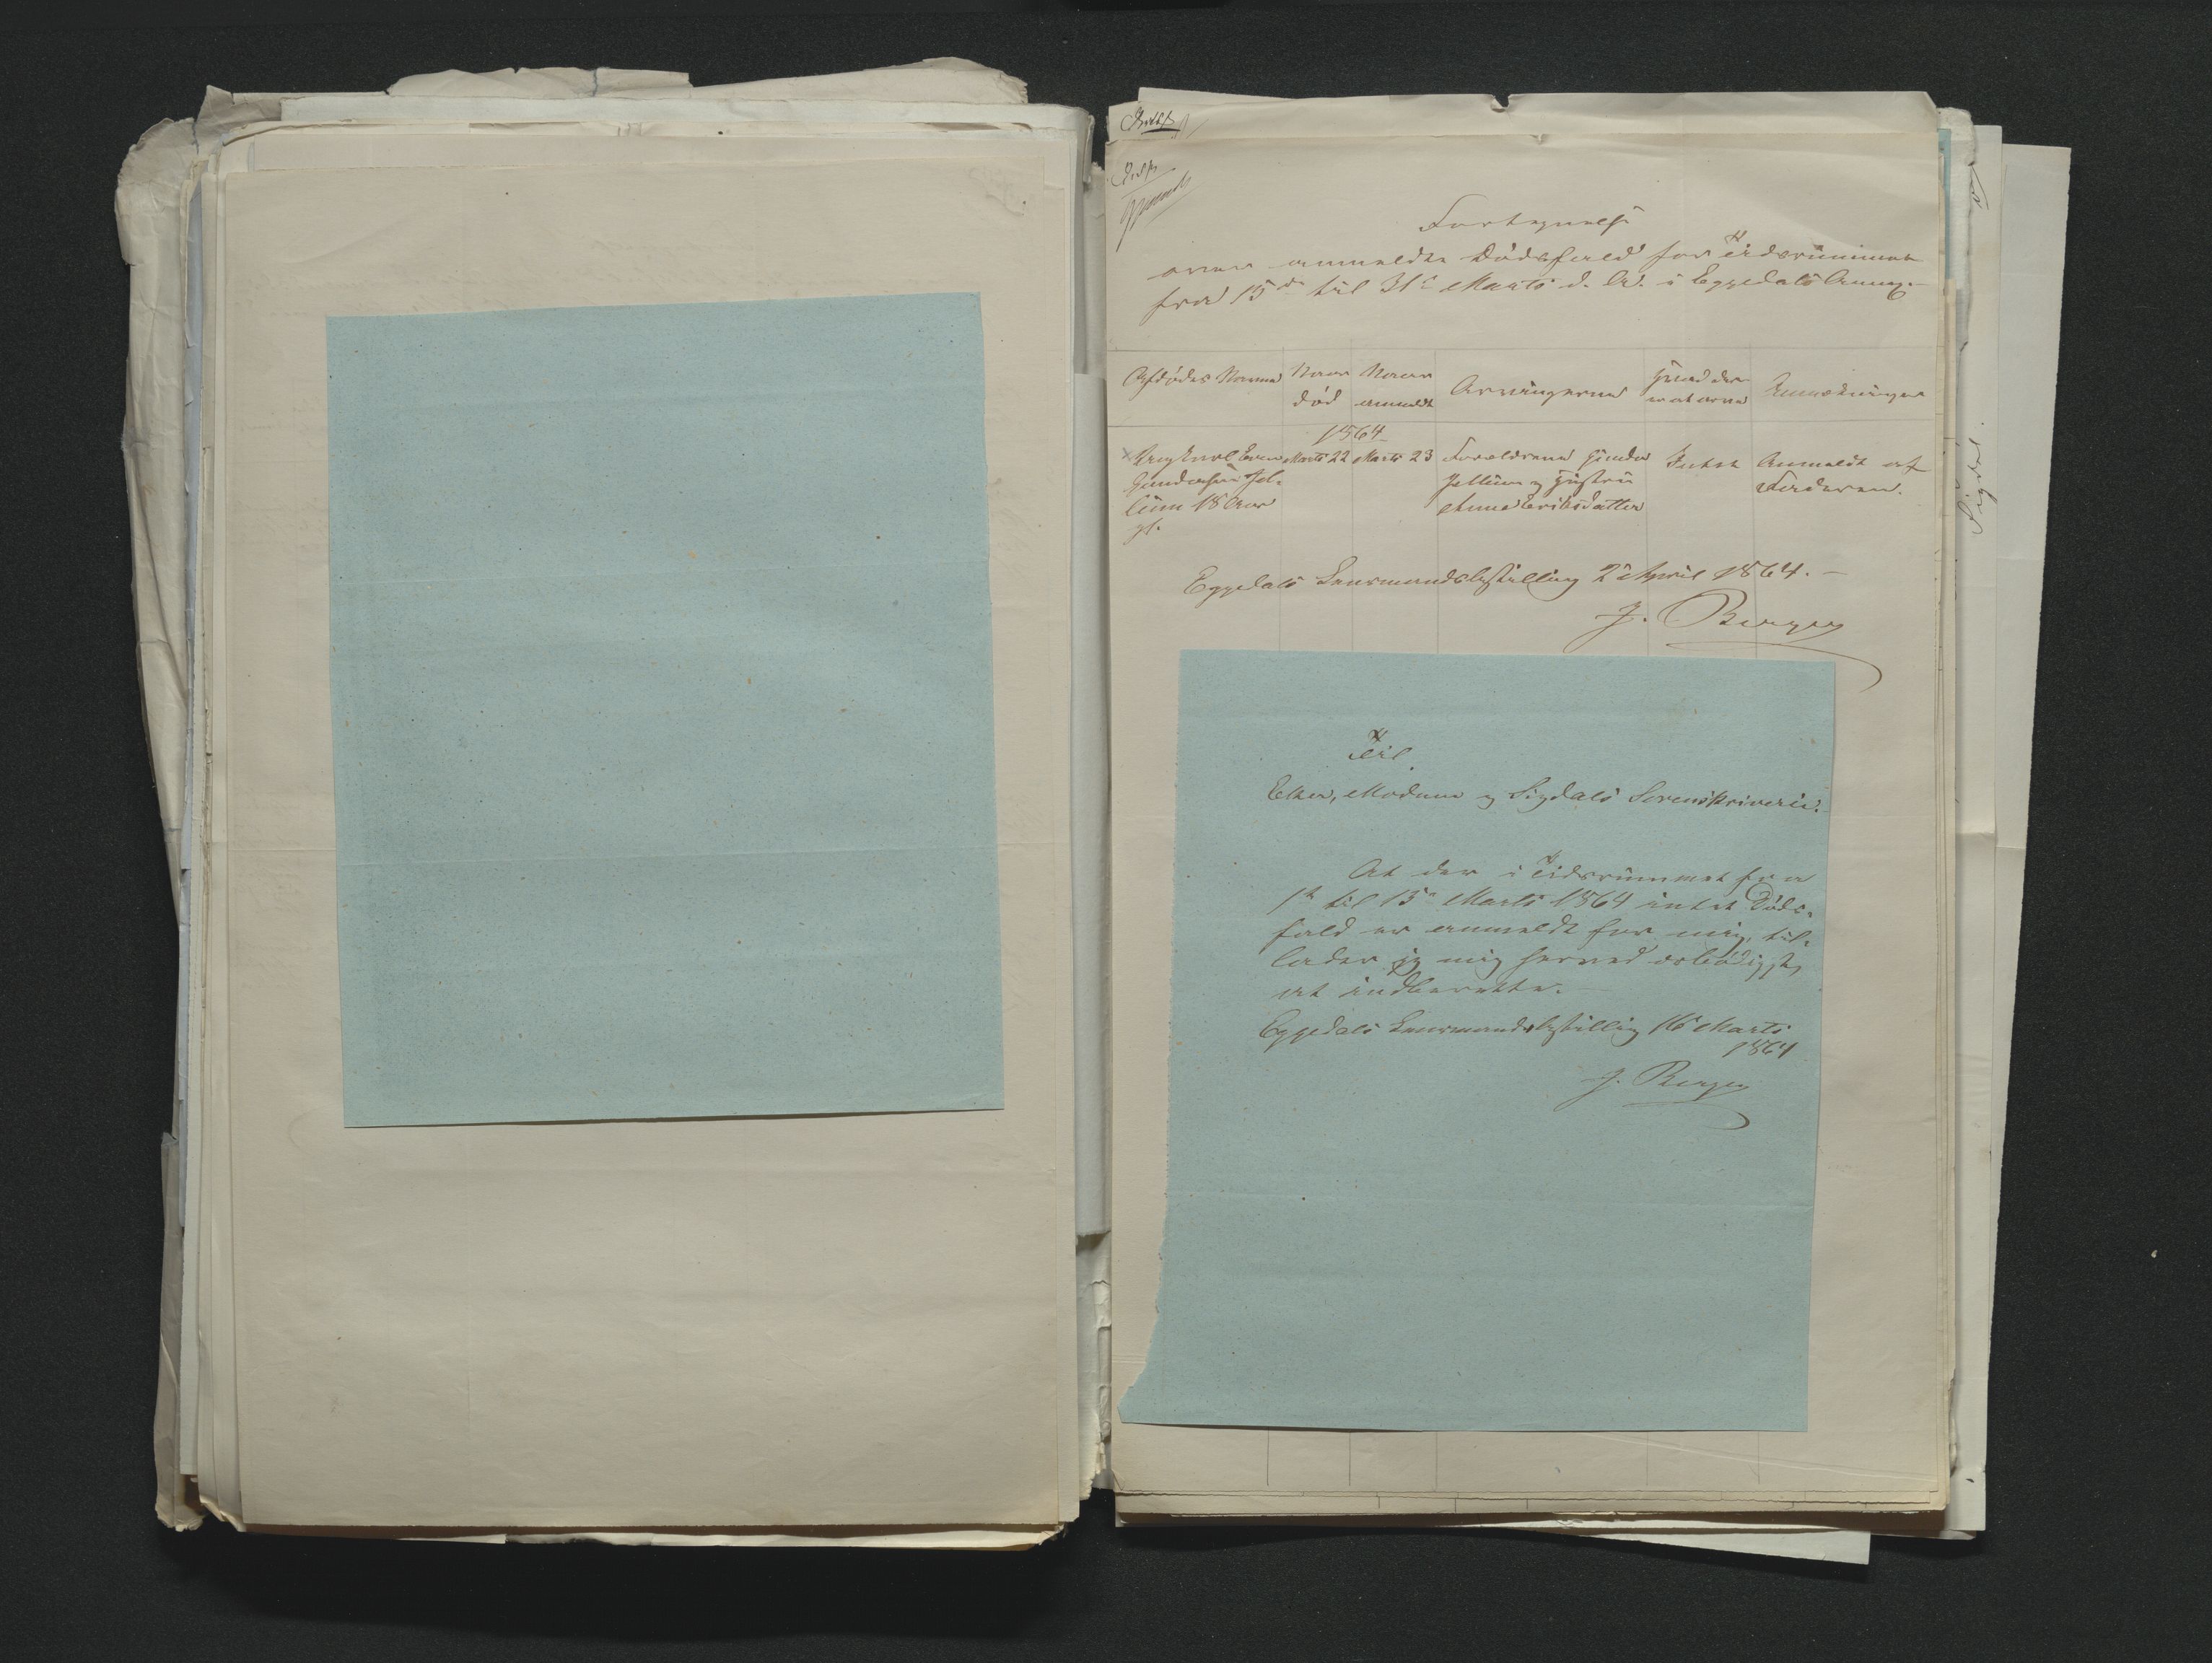 Fortegnelse
over anmeldte Dödsfald for Tidsrummet
fra 15de til 31te Marts d. A. i Eggedals Annex.
Afdödes Navne
Naar död
Naar anmeldt
Arvingerne
Hvad der er at arve
Anmærkninger
1864
Ungkarl Even
Gundersen
18 Aar
gl.
Marts 22
Marts 23
Forældrene Gunder
og Hustru
Anne Eriksdatter
Intet
Anmeldt af
Faderen.
Eggedals Lensmandsbestilling 2 April 1864.
J. Berger
Til
Eker, Modum og Sigdals Sorenskriveri.
At der i Tidsrummet fra
1te til 15de Marts 1864 intet Döds-
fald er anmeldt for mig, til-
lader jeg mig herved ærbödigst
at indberette.
Eggedals Lensmandsbestilling 16 Marts
1864
J. Berger
Sigdal.